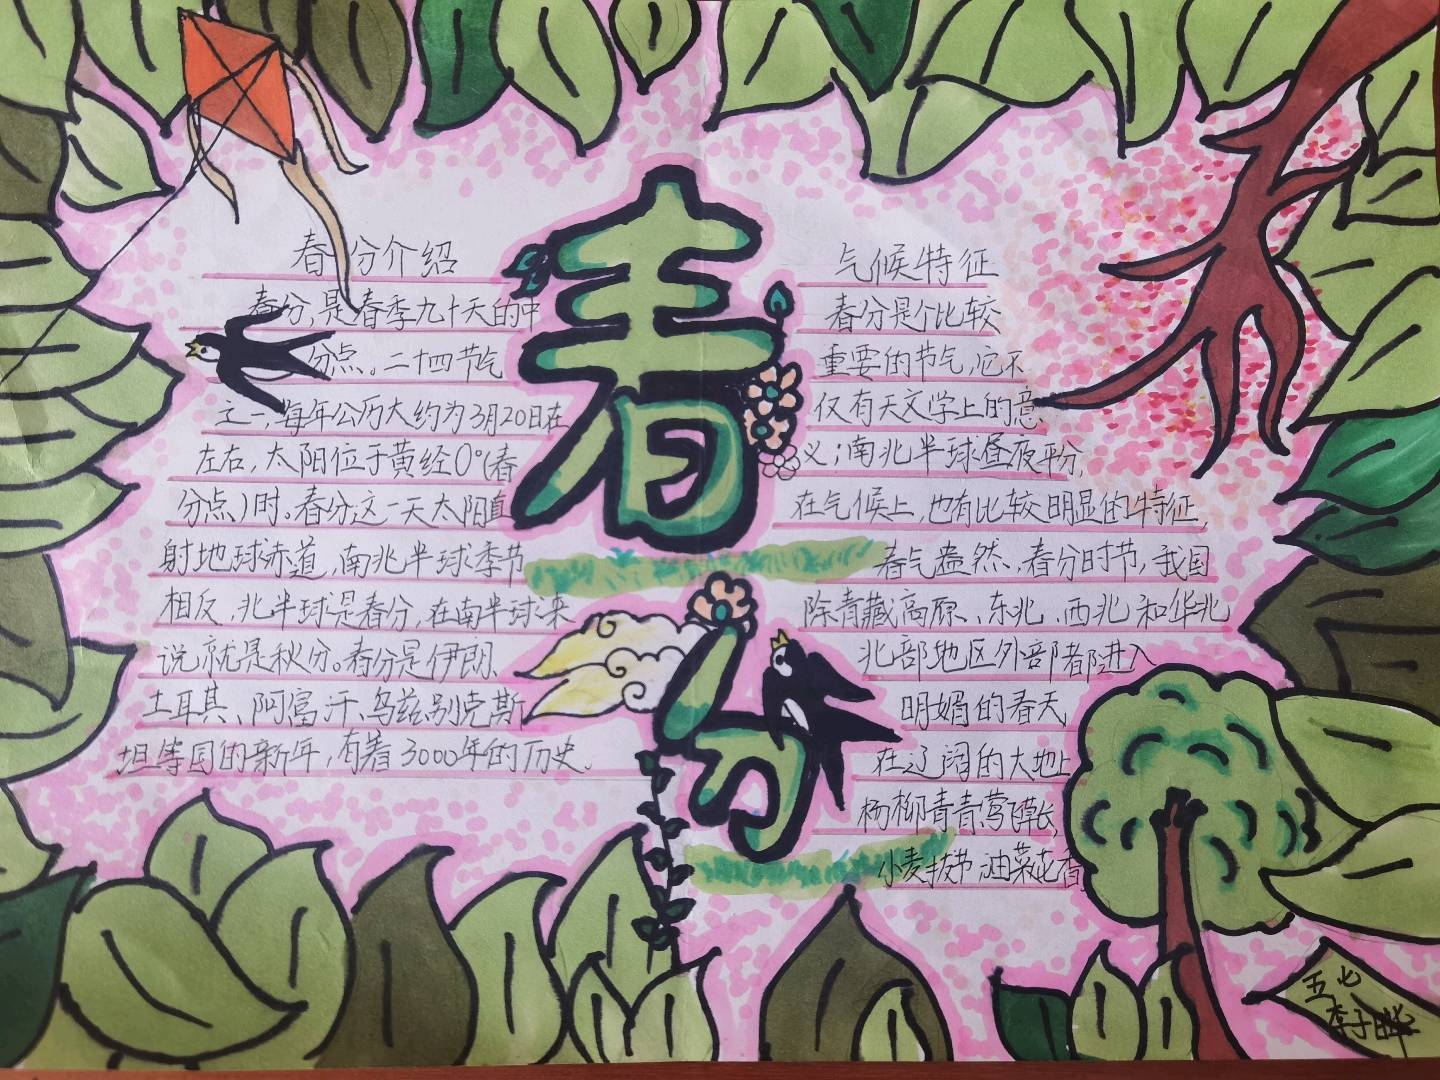 春分
春分介绍
春分，是春季九十天的中
分点。二十四节气
之一，每年公历大约为3月20日在
左右，太阳位于黄经0°(春
分点)时。春分这一天太阳直
射地球赤道，南北半球季节
相反，北半球是春分，在南半球来
说就是秋分。春分是伊朗、
土耳其、阿富汗、乌兹别克斯
坦等国的新年，有着3000年的历史。
气候特征
春分是个比较
重要的节气，它不
仅有天文学上的意
义；南北半球昼夜平分，
在气候上，也有比较明显的特征，
春气盎然，春分时节，我国
除青藏高原、东北、西北和华北
北部地区外部都进入
明媚的春天
在辽阔的大地上
杨柳青青，莺草长，
小麦拔节油菜花香
五七
李子晔